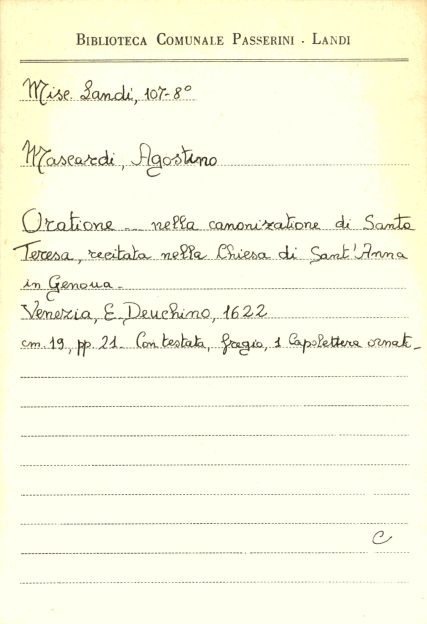 BIBLIOTECA COMUNALE PASSERINI - LANDI
Misc. Landi, 107-8°
Mascardi, Agostino
Oratione ... nella canonizatione di Santa
Teresa, recitata nella Chiesa di Sant'Anna
in Genova.
Venezia, E. Deuchino, 1622
cm. 19, pp. 21. Con testata, fregio, 1 Capolettera ornati.
C